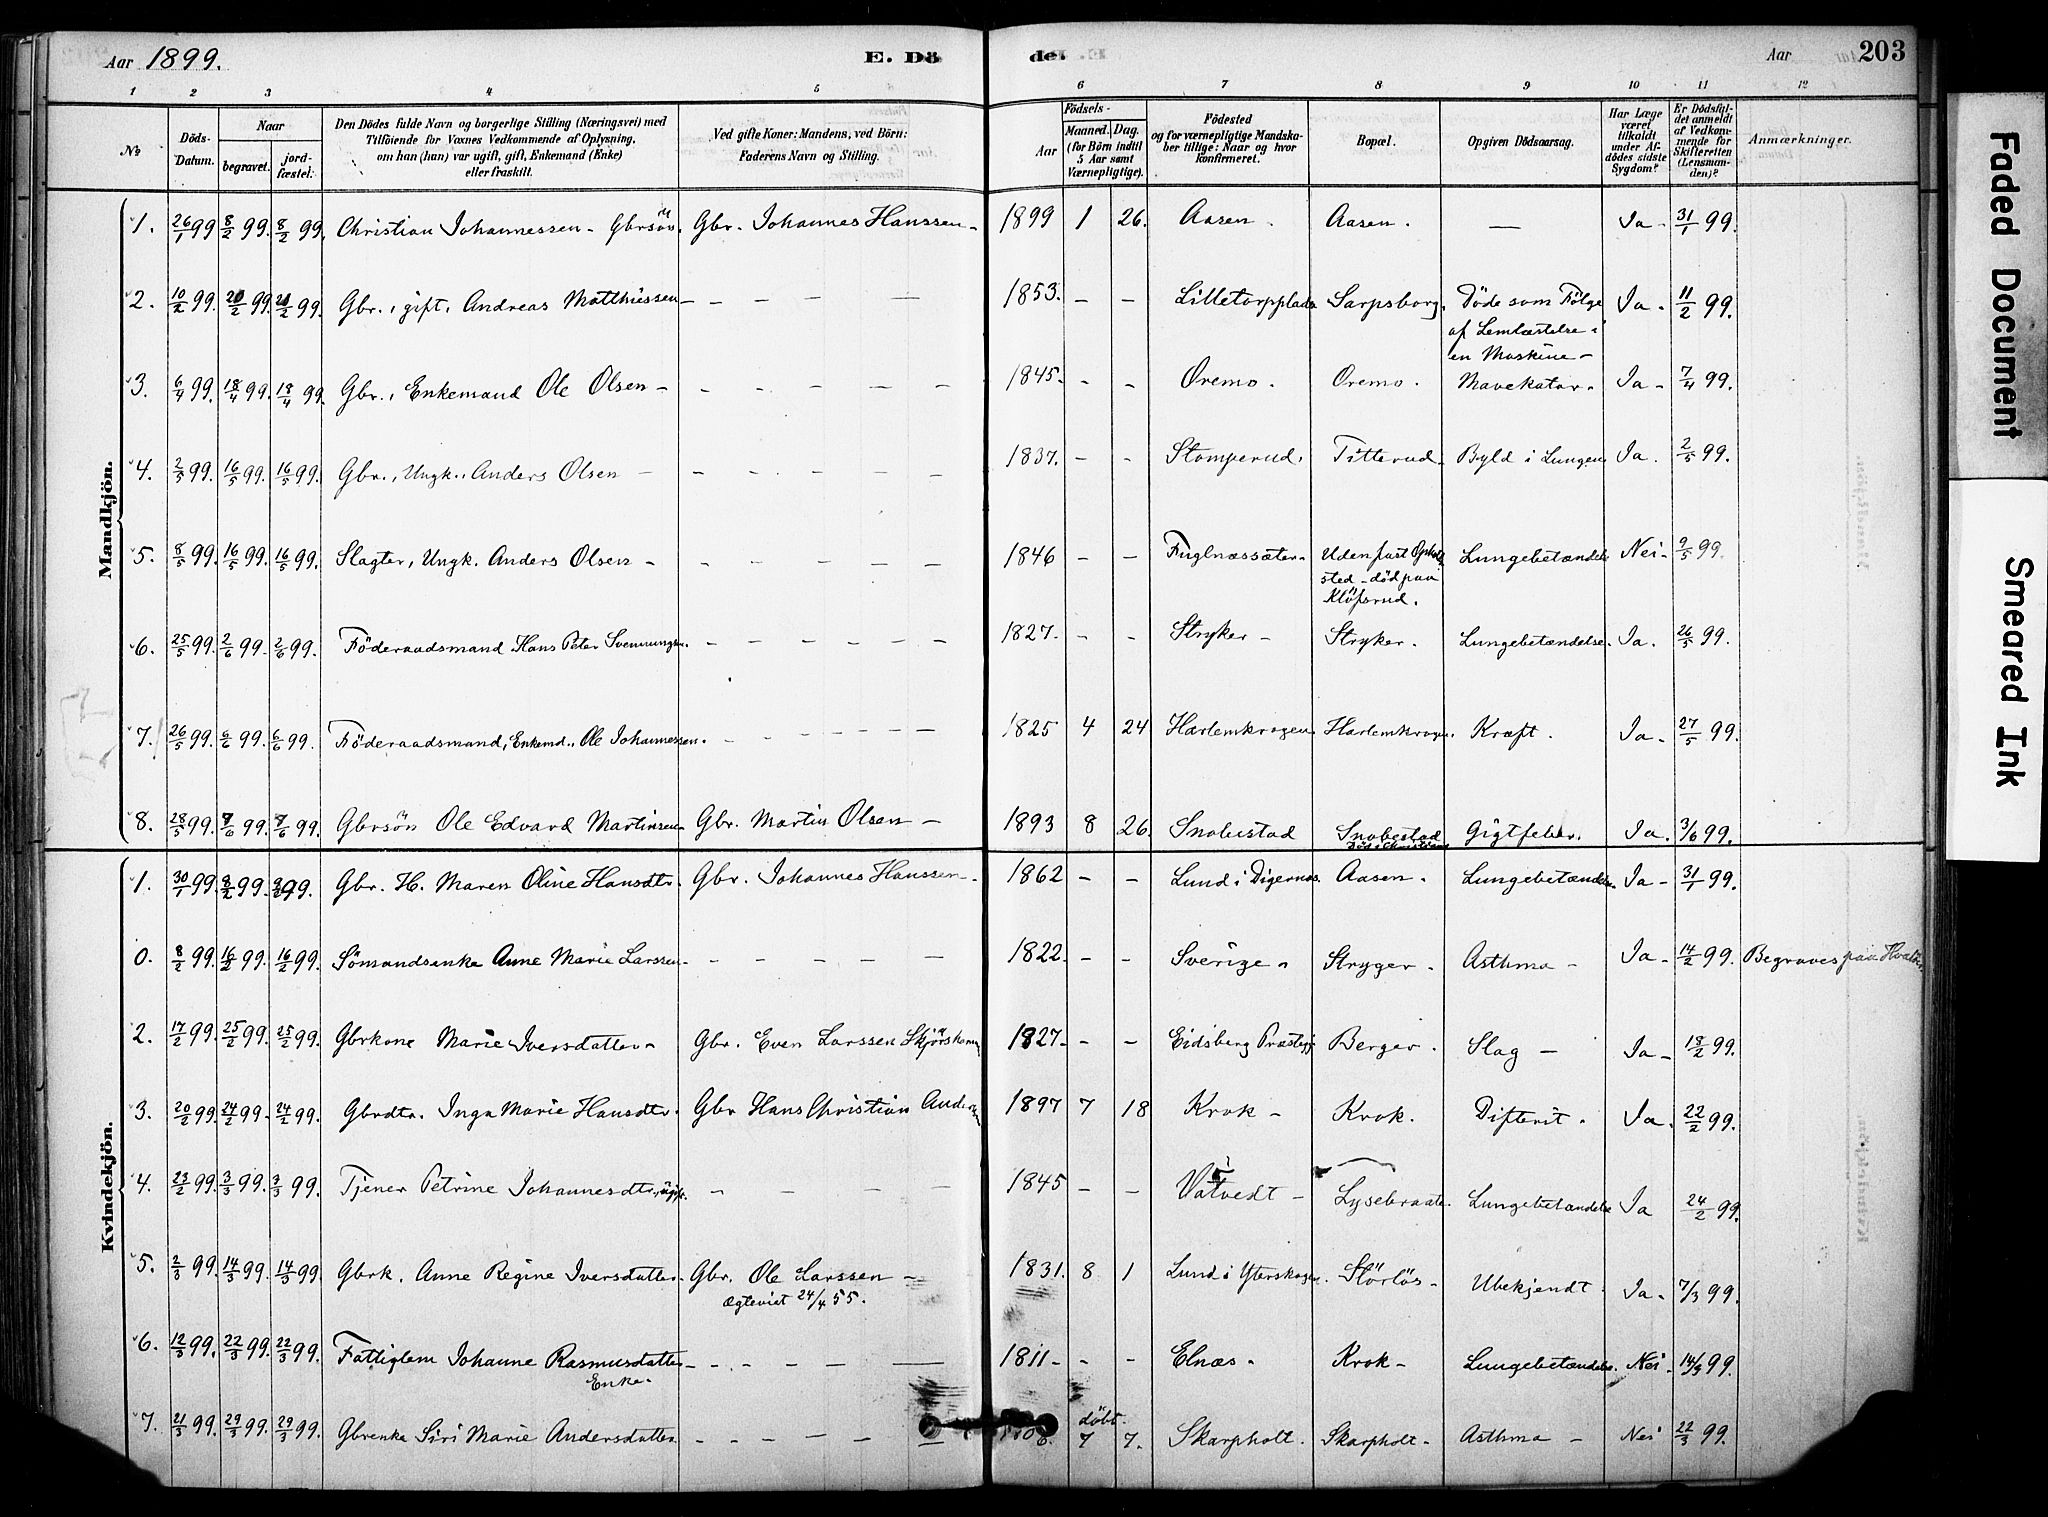 Aar 1899. E. Dö
de. Aar 203
1 2 3 4 5 6 7 8 9 10 11 12
№ Döds-Datum. Naar begravet. jord-fæstet. Den Dödes fulde Navn og borgerlige Stilling (Næringsvei) med Tilföiende for Voxnes Vedkommende af Oplysning, om han (hun) var ugift, gift, Enkemand (Enke) eller fraskilt. Ved gifte Koner: Mandens, ved Börn: Faderens Navn og Stilling. Aar Födsels- Maaned. Dag. (for Börn indtil 5 Aar samt Værnepligtige). Födested og for værnepligtige Mandska-ber tillige: Naar og hvor konfirmeret. Bopæl. Opgiven Dödsaarsag. Har Læge været tilkaldt under Af-dödes sidste Sygdom? Er Dödsfal-det anmeldt af Vedkom-mende for Skifteretten (Lensman-den)? Anmærkninger.
Mandkjön.
1. 26/1 99 8/2 99. 8/2 99. Christian Johannessen - Gbrsön. Gbr. Johannes Hanssen - 1899 1 26. Aasen. Aasen. — Ja - 31/1 99.
2. 10/2 99. 20/2 99. 20/2 99. Gbr., gift, Andreas Matthiessen - - - - - 1853. - - Lilletorpplads Sarpsborg. Döde som Fölge Ja - 11/2 99.
af Lemlæstelse i
en Maskine -
3. 6/4 99. 18/4 99. 18/4 99. Gbr., Enkemand Ole Olsen - - - - - - 1845. - - Oremo. Oremo. Mavekatar. Ja - 7/4 99.
4. 2/5 99. 16/5 99. 16/5 99. Gbr., Ungk., Anders Olsen - - - - - 1837. - - Stomperud. Titterud. Byld i Lungen Ja. 2/5 99.
5. 8/5 99. 16/5 99. 16/5 99. Slagter, Ungk. Anders Olsen - - - - - 1846 - - Fuglnæssæter. Uden fast Opholds Lungebetændelse Nei - 9/5 99.
sted - död paa
Klöfsrud.
6. 25/5 99. 2/6 99. 2/6 99. Föderaadsmand Hans Peter Svenningsen. - - - - 1827. - - Stryker - Stryker. Lungebetændelse. Ja. 26/5 99.
7. 26/5 99. 6/6 99. 6/6 99. Föderaadsmand, Enkemd., Ole Johannessen. - - - - - 1825 4 24 Harlemkrogen Harlemkrogen. Kræft. Ja - 27/5 99.
8. 28/5 99. 7/6 99. 7/6 99. Gbrsön Ole Edvard Martinsen - Gbr. Martin Olsen - 1893 8 26. Snobestad Snobestad Gigtfeber. Ja. 3/6 99.
Kvindekjön.
1. 30/1 99. 8/2 99. 8/2 99. Gbr. H. Maren Oline Hansdtr. Gbr. Johannes Hanssen - 1862 - - Lund i Digernæs. Aasen. Lungebetændelse. Ja - 31/1 99.
0. 8/2 99. 16/2 99. 16/2 99. Sömandsenke Anne Marie Larssen - - - - - 1822 - - - Sverige - Stryger. Asthma - Ja - 14/2 99. Begraves paa Hvaler.
2. 17/2 99. 25/2 99. 25/2 99. Gbrkone Marie Iversdatter - Gbr. Even Larssen 1827. - - Eidsberg Præstegj Berger. Slag - Ja - 18/2 99.
3. 20/2 99. 24/2 99. 24/2 99. Gbrdtr. Inga Marie Hansdtr. Gbr Hans Christian Andersen 1897 7 18 Krok - Krok. Difterit. Ja. 22/2 99.
4. 23/2 99. 3/3 99. 3/3 99. Tjener Petrine Johannesdtr., ugift. - - - - 1845 - - Vatvedt - Lysebraate. Lungebetændelse Ja 24/2 99.
5. 2/3 99. 14/3 99. 14/3 99. Gbrk. Anne Regine Iversdatter. Gbr. Ole Larssen - 1831. 8 1 Lund i Yterskogen. Störlös - Ubekjendt. Ja - 7/3 99.
Ægteviet 24/4 55.
6. 12/3 99. 22/3 99. 22/3 99. Fattiglem Johanne Rasmusdatter - - - - - 1811 - - - Elnæs - Krok - Lungebetændelse. Nei - 14/3 99.
Enke.
7. 21/3 99. 29/3 99. 29/3 99. Gbrenke Siri Marie Andersdatter - - - - - döbt. 7 7. Skarpholt. Skarpholt - Asthma - Nei 22/3 99.
Faded Document
Smeared Ink